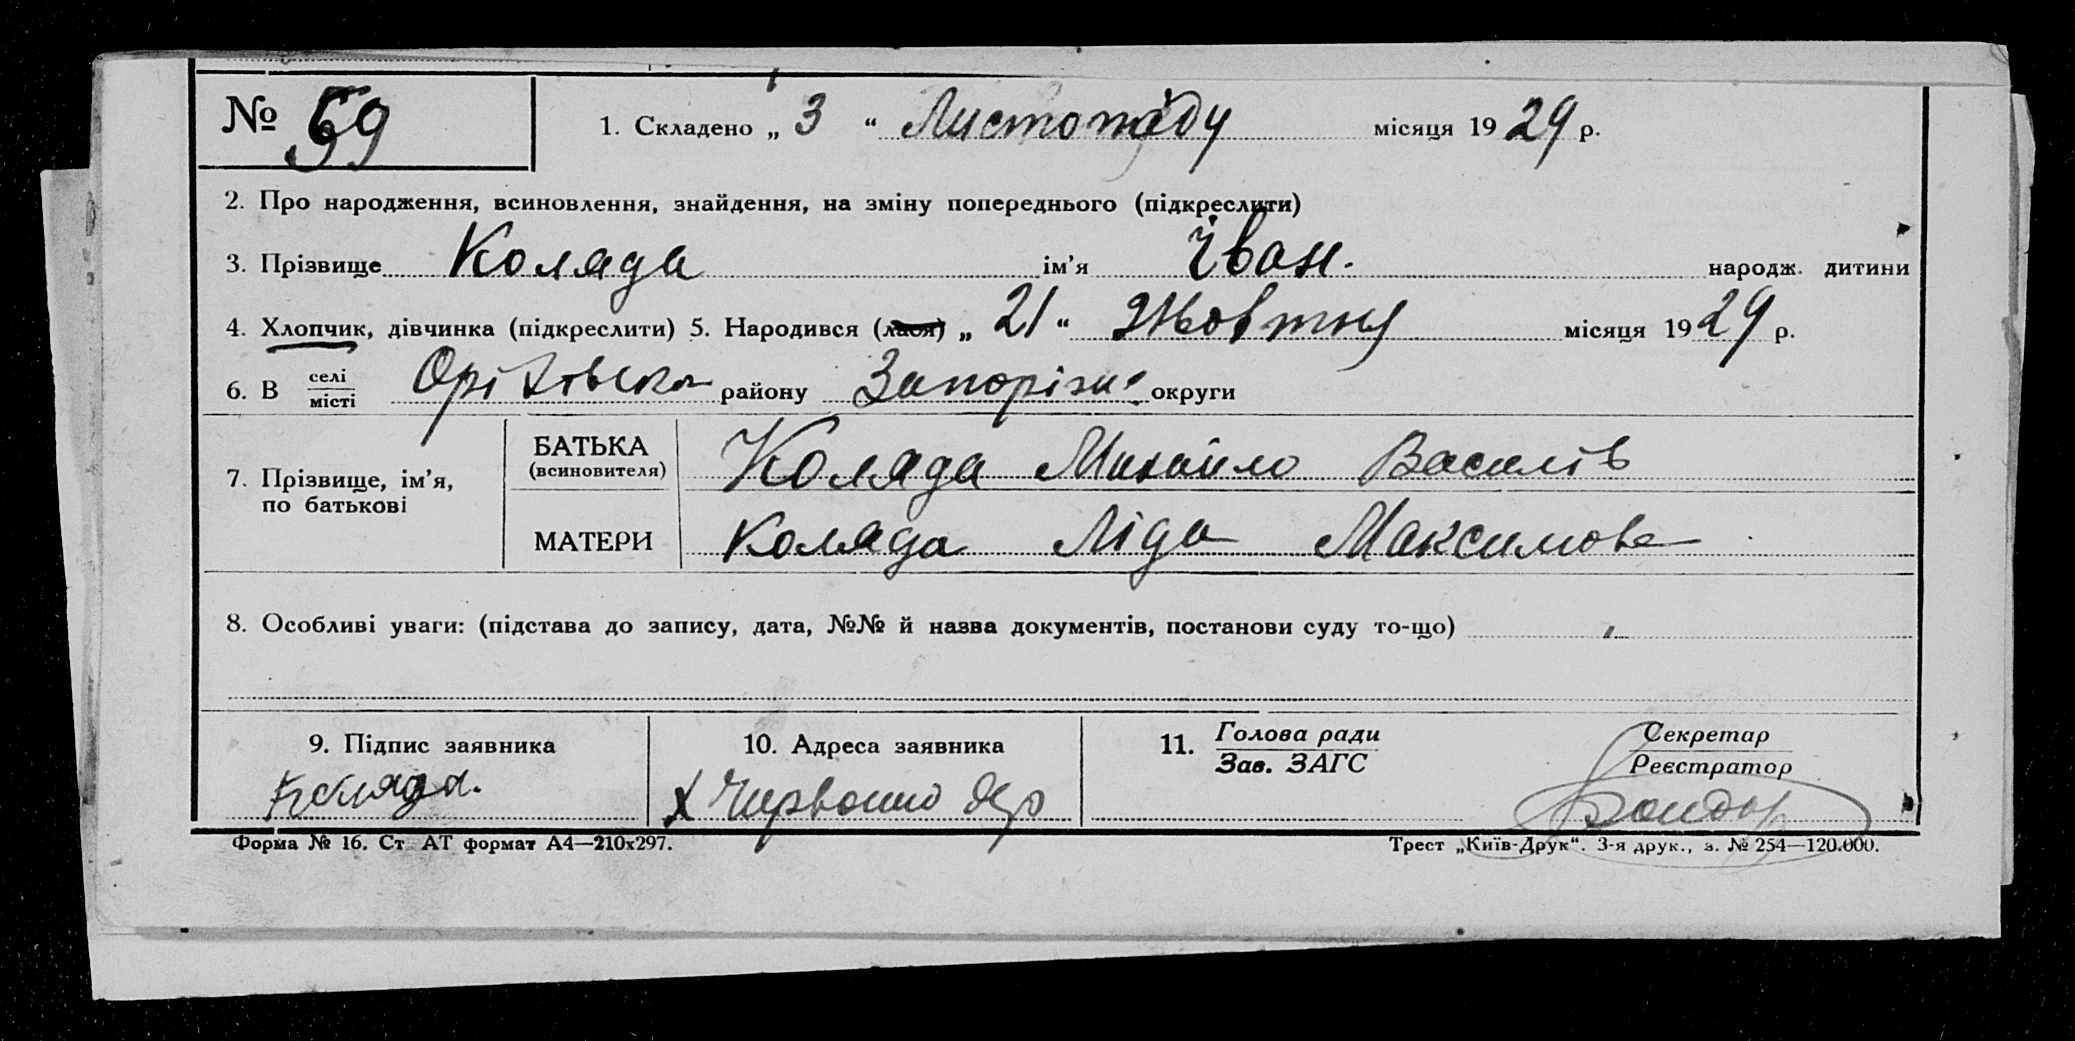 № 59
1. Складено „ 3 “ Листопаду місяця 1929 р.
2. Про народження, всиновлення, знайдення, на зміну попереднього (підкреслити)
3. Прізвище Коляда ім’я Іван. народж. дитини
4. Хлопчик, дівчинка (підкреслити) 5. Народився (лася) „ 21 “ Жовтня місяця 1929 р.
6. В селі
місті Оріхівськ району Запорізьк округи
7. Прізвище, ім’я,
по батькові
БАТЬКА
(всиновителя) Коляда Михайло Василів
МАТЕРИ Коляда Ліда Максимова
8. Особливі уваги: (підстава до запису, дата, №№ й назва документів, постанови суду то-що)
9. Підпис заявника
Коляда.
10. Адреса заявника
х Червоно
11. Голова ради
Зав. ЗАГС
Секретар
Реєстратор
Форма № 16. Ст АТ формат А4—210х297.
Трест „Київ-Друк“. 3-я друк., з. № 254—120.000.